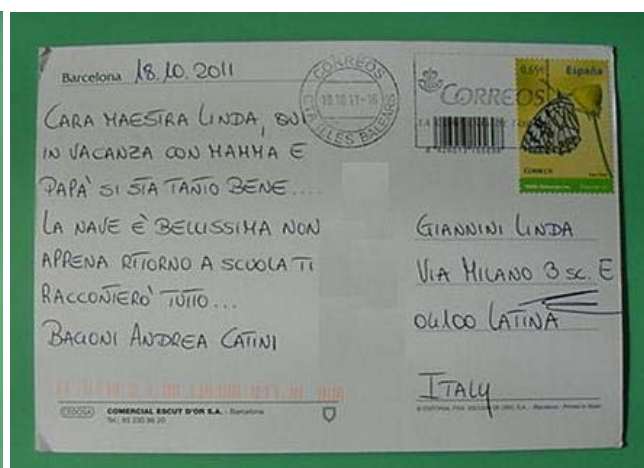 Barcelona 18.10.2011
CARA MAESTRA LINDA, QUI
IN VACANZA CON MAMMA E
PAPA' SI STA TANTO BENE....
LA NAVE È BELLISSIMA NON
APPENA RITORNO A SCUOLA TI
RACCONTERO' TUTTO...
BACIONI ANDREA CATINI
CORREOS
ILLES BALEARS
CORREOS
0,65€ España
CORREOS
GIANNINI LINDA
VIA MILANO 3 SC. E
04100 LATINA
ITALY
COMERCIAL ESCUT D'OR S.A. - Barcelona